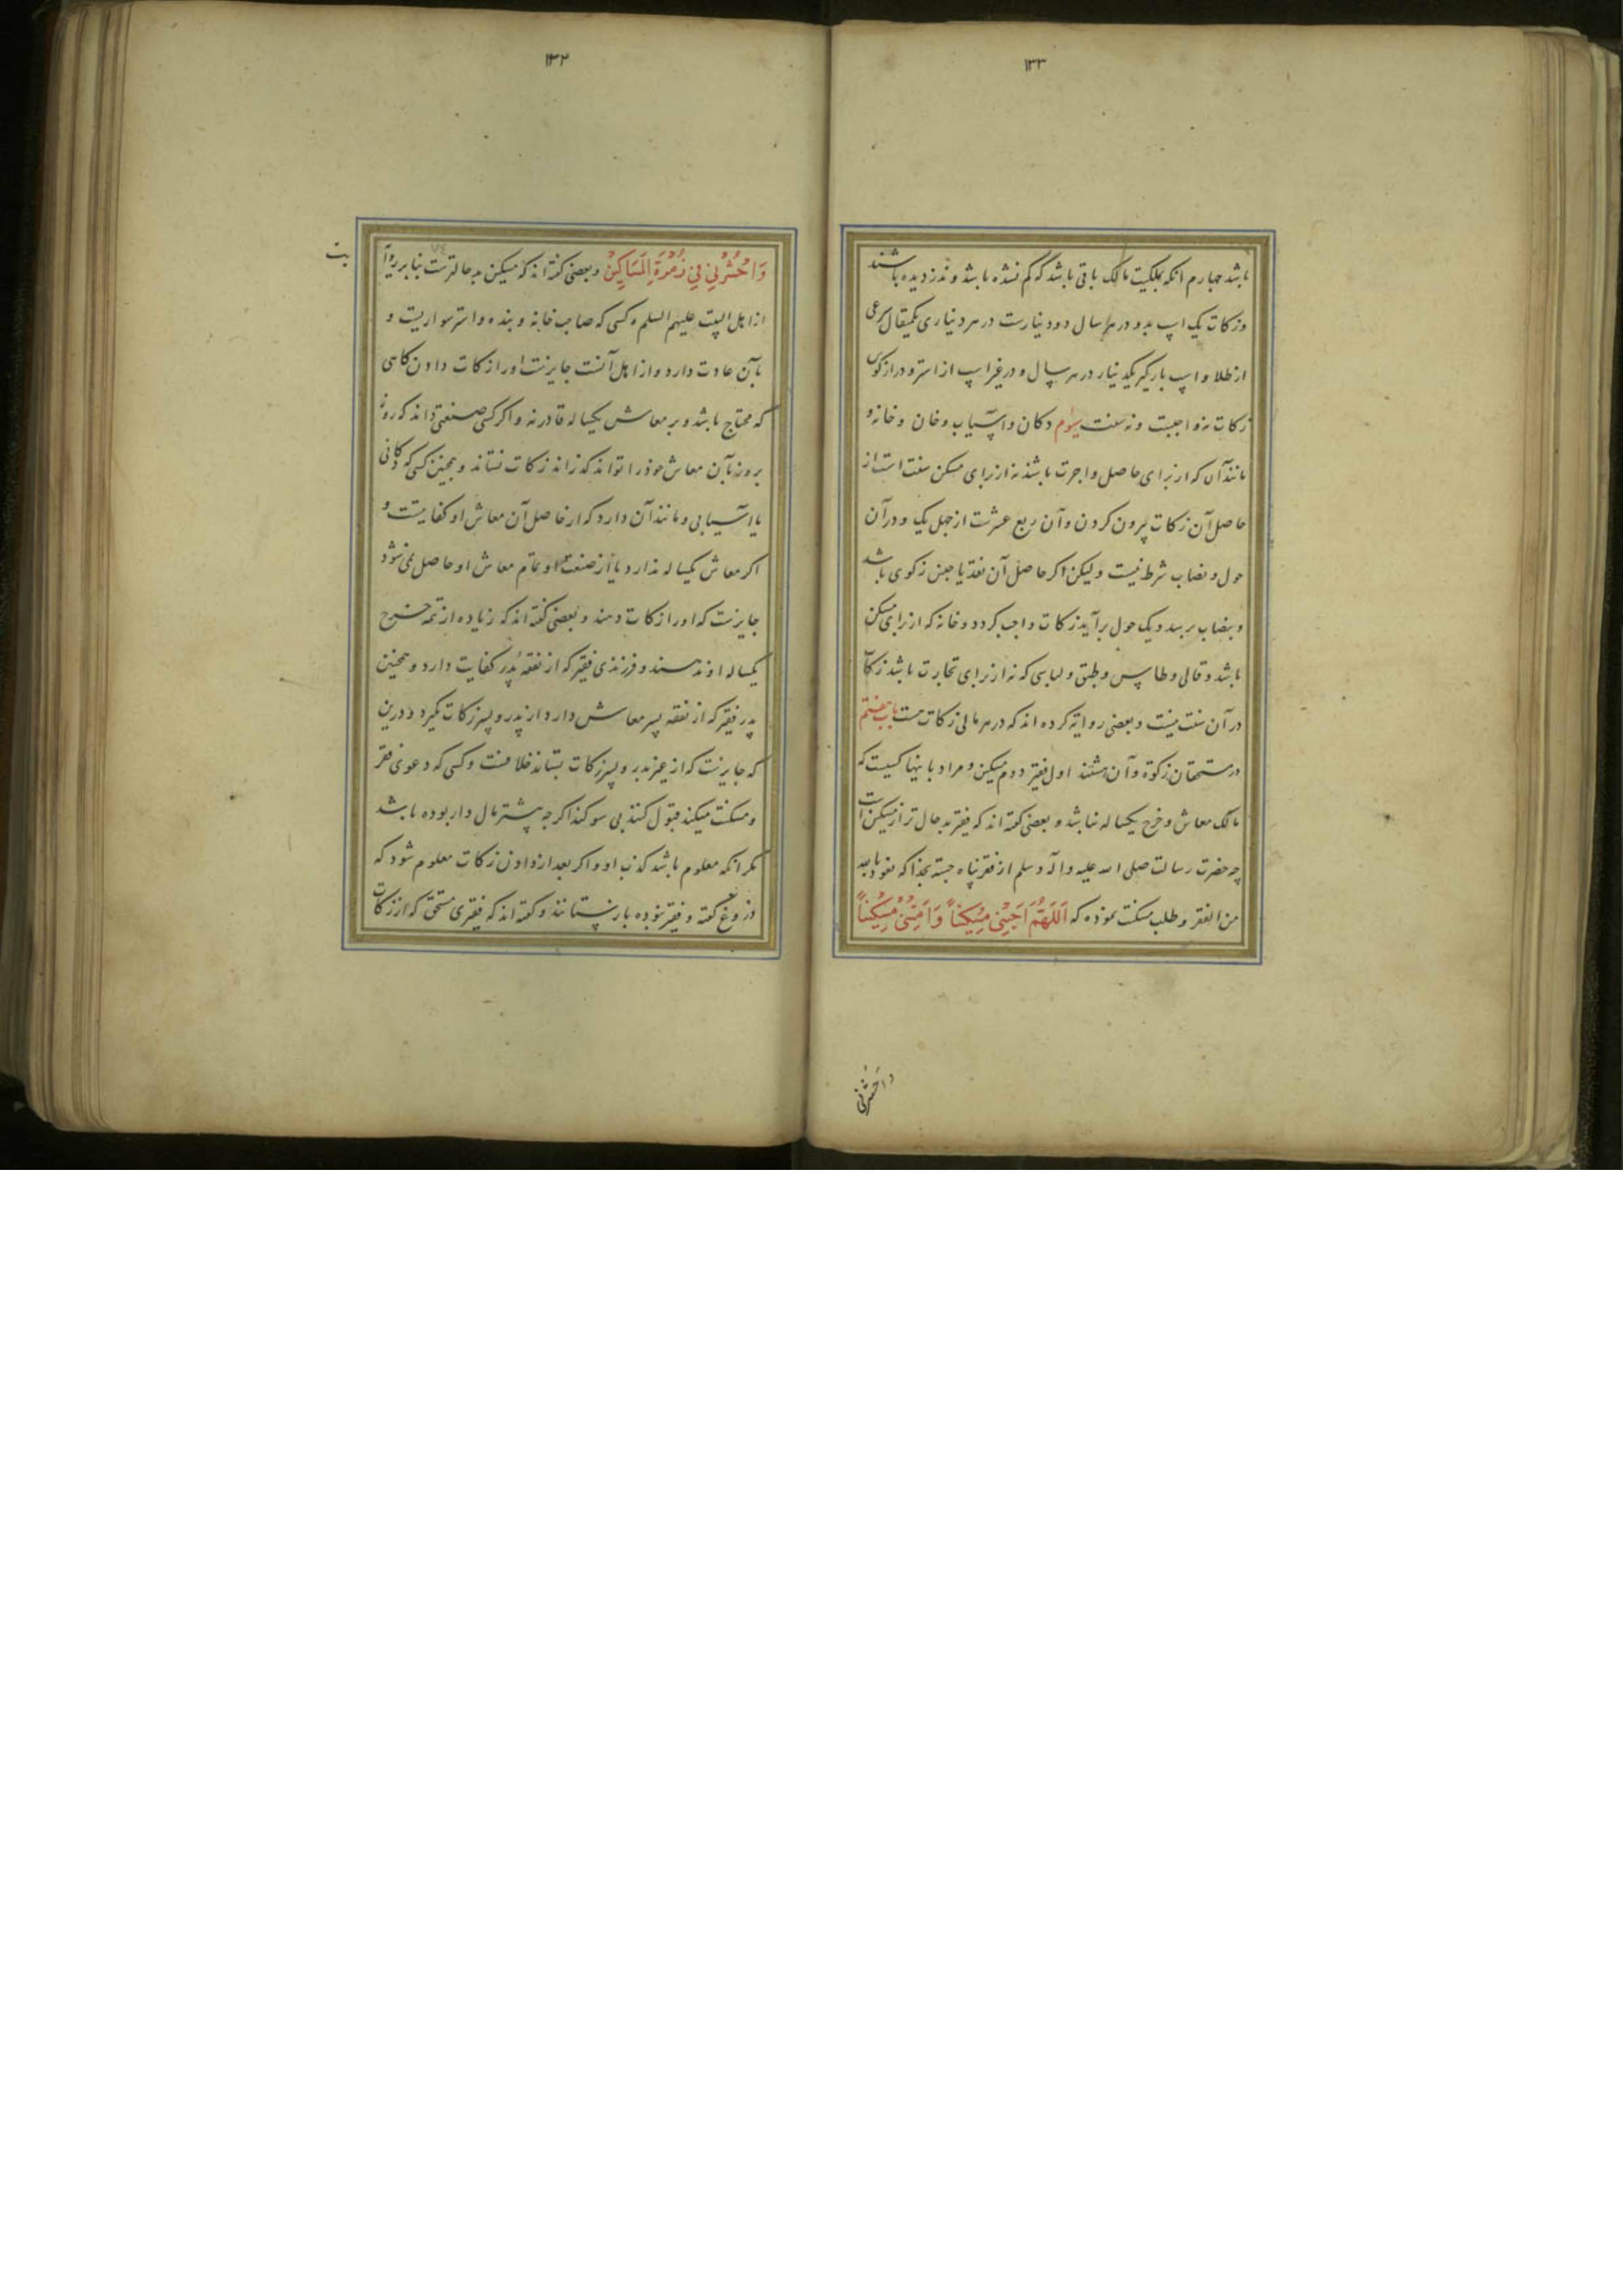 ۱۳۳
باشد چهارم آنکه بملکیت مالک باقی باشد که گم نشده باشد و ندزدیده باشند
و زکات یک اسپ بدو در هر سال دو دینارست در هر دیناری یکمثقال شرعی
از طلا و اسپ بارگیر یکدینار در هر سال و در غیر اسپ از استر و درازگوش
زکات نه واجبست و نه سنت سیوم دکان و آسیاب و خان و خانه و
مانند آن که از برای حاصل و اجرت باشد نه از برای مسکن سنت است از
حاصل آن زکات بیرون کردن و آن ربع عشرست از چهل یک و در آن
حول و نصاب شرط نیست ولیکن اگر حاصل آن نقد یا جنس زکوی باشد
و بنصاب برسد و یک حول برآید زکات واجب گردد و خانه که از برای مسکن
باشد و قالی و طاس و طبق و لباسی که نه از برای تجارت باشد زکات
در آن سنت نیست و بعضی روایة کرده اند که در هر مالی زکات هست باب هفتم
در مستحقان زکوة و آن هشتند اول فقیر دوم مسکین و مراد باینها کسیست که
مالک معاش و خرج یکساله نباشد و بعضی گفته اند که فقیر بدحال تر از مسکین است
چه حضرت رسالت صلی الله علیه و آله و سلم از فقر پناه جسته بخدا که نعوذ بالله
من الفقر و طلب مسکنت نموده که اَللّهُمَّ اَحْیِنِی مِسْکِیناً وَ اَمِتْنِی مِسْکِیناً
واحشرنی
۱۳۲
وَاحْشُرْنِی فِی زُمْرَةِ الْمَسَاکِینْ و بعضی گفته اند که مسکین بدحالترست بنابر روایة
از اهل البیت علیهم السلم و کسی که صاحب خانه و بنده و استر سواریست و
بآن عادت دارد و از اهل آنست جایزست او را زکات دادن گاهی
که محتاج باشد و بر معاش یکساله قادر نه و اگر کسی صنعتی داند که روز
بروز بآن معاش خود را تواند گذراند زکات نستاند و همچنین کسی که دکانی
یا آسیابی و مانند آن دارد که از حاصل آن معاش او کفایتست و
اگر معاش یکساله ندارد یا از صنعت او تمام معاش او حاصل نمی شود
جایزست که او را زکات دهند و بعضی گفته اند که زیاده از تتمه خرج
یکساله او ندهند و فرزندی فقیر که از نفقه پدر کفایت دارد و همچنین
پدر فقیر که از نفقه پسر معاش دارد از پدر و پسر زکات نگیرد و درین
که جایزست که از غیر پدر و پسر زکات بستاند خلافست و کسی که دعوی فقر
و مسکنت میکند قبول کنند بی سوگند اگر چه پیشتر مال دار بوده باشد
مگر آنکه معلوم باشد کذب او و اگر بعد از دادن زکات معلوم شود که
دروغ گفته و فقیر نبوده باز ستانند و گفته اند که فقیری مستحق که از زکات